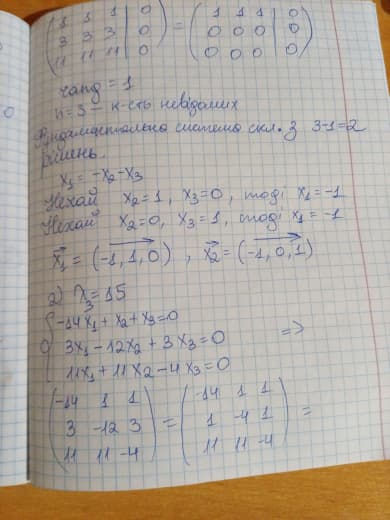 (1 1 1 | 0
3 3 3 | 0
11 11 11 | 0) = (1 1 1 | 0
0 0 0 | 0
0 0 0 | 0)
rang = 1
n = 3 - к-сть невідомих
Фундаментальна система скл. з 3-1=2
рішень.
x₁ = -x₂-x₃
Нехай x₂=1, x₃=0, тоді x₁=-1
Нехай x₂=0, x₃=1, тоді x₁=-1
x₁ = (-1, 1, 0), x₂ = (-1, 0, 1)
2) λ₃=15
{-14x₁ + x₂ + x₃=0
3x₁ -12x₂ + 3x₃=0 =>
11x₁ + 11x₂ -4x₃=0
(-14 1 1
3 -12 3
11 11 -4) = (-14 1 1
1 -4 1
11 11 -4) =